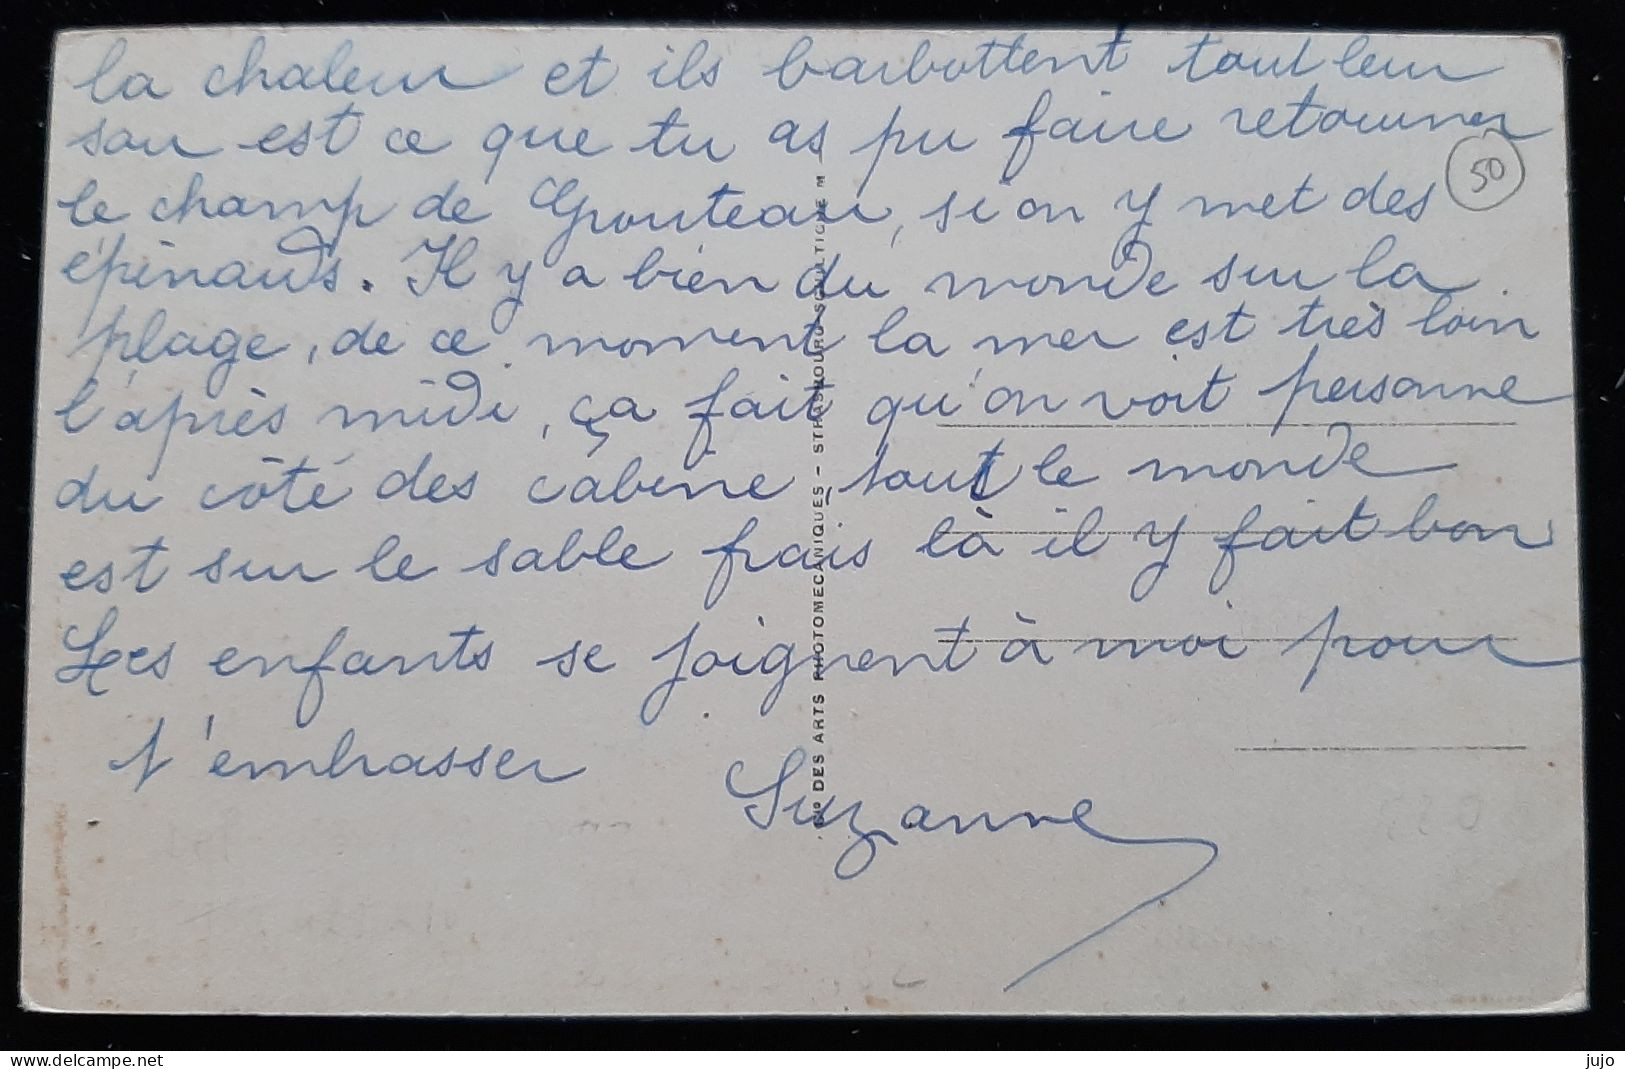 la chaleur et ils barbottent tout leur
sou est ce que tu as pu faire retourner
le champ de Grouteau, si on y met des
épinards. Il y a bien du monde sur la
plage, de ce moment la mer est très loin
l'après midi, ça fait qu'on voit personne
du côté des cabine tout le monde
est sur le sable frais là il y fait bon
Les enfants se joignent à moi pour
t'embrasser
Suzanne
50
Cie DES ARTS PHOTOMECANIQUES - STRASBOURG-SCHILTIGHEIM
delcampe.net
jujo